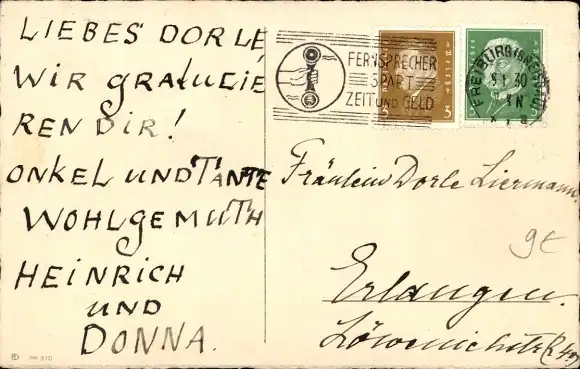 LIEBES DORLE,
WIR GRATULIE
REN DIR!
ONKEL UND TANTE
WOHLGEMUTH
HEINRICH
UND
DONNA.
FERNSPRECHER
SPART
ZEIT UND GELD
5
5
FREIBURG (BREISGAU)
30
Fräulein Dorle Liermann
Erlangen.